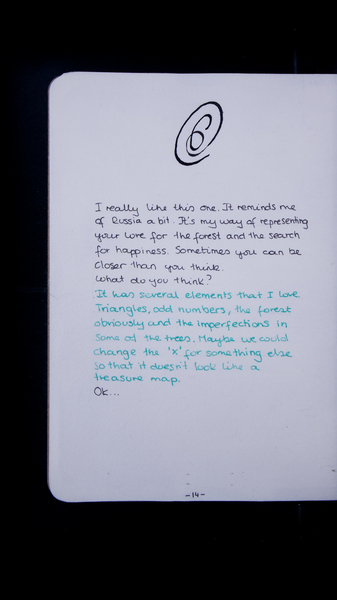 6
I really like this one. It reminds me
of Russia a bit. It's my way of representing
your love for the forest and the search
for happiness. Sometimes you can be
closer than you think.
What do you think?
It has several elements that I love
Triangles, odd numbers, the forest
obviously and the imperfections in
some of the trees. Maybe we could
change the 'x' for something else
so that it doesn't look like a
treasure map.
Ok...
-14-